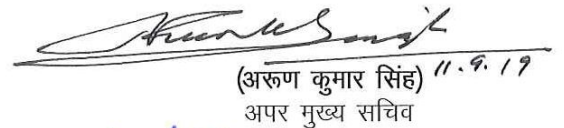 (अरूण कुमार सिंह) 11.9.19
अपर मुख्य सचिव